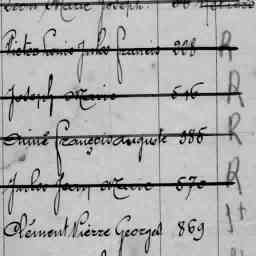 Léon Marie Joseph.
Victor Louis Jules Francis 228 R
Joseph Marie 546 R
Aimé François Auguste 385 R
Jules Jean Marie 570 R
Clément Pierre Georges 869